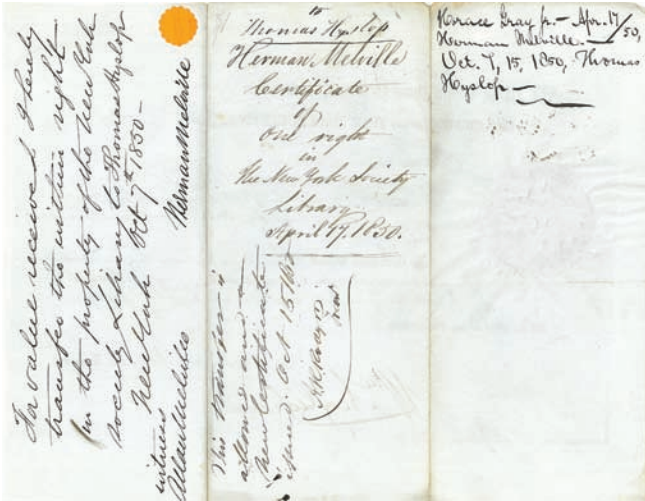 For value received I hereby
transfer the within right
in the property of the New York
Society Library to Thomas Hyslop
New York Oct 7th 1850 –
Herman Melville
witness
Allan Melville
to
Thomas Hyslop
Herman Melville
Certificate
of
One right
in
The New York Society
Library
April 17. 1850.
This transfer is
allowed and a
new Certificate
issued. Oct 15 1850
Horace Gray Jr. – Apr. 17/50,
Herman Melville. –
Oct. 7, 15, 1850, Thomas
Hyslop –